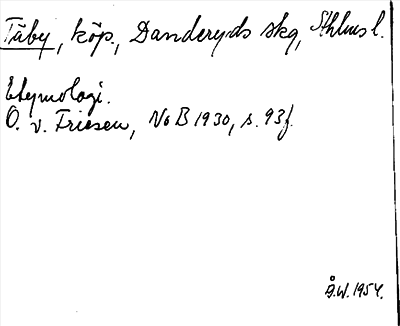 Täby, köp., Danderyds skg, Sthlms l.
Etymologi.
O. v. Friesen, NoB 1930, s. 93 f.
Å.W. 1954.